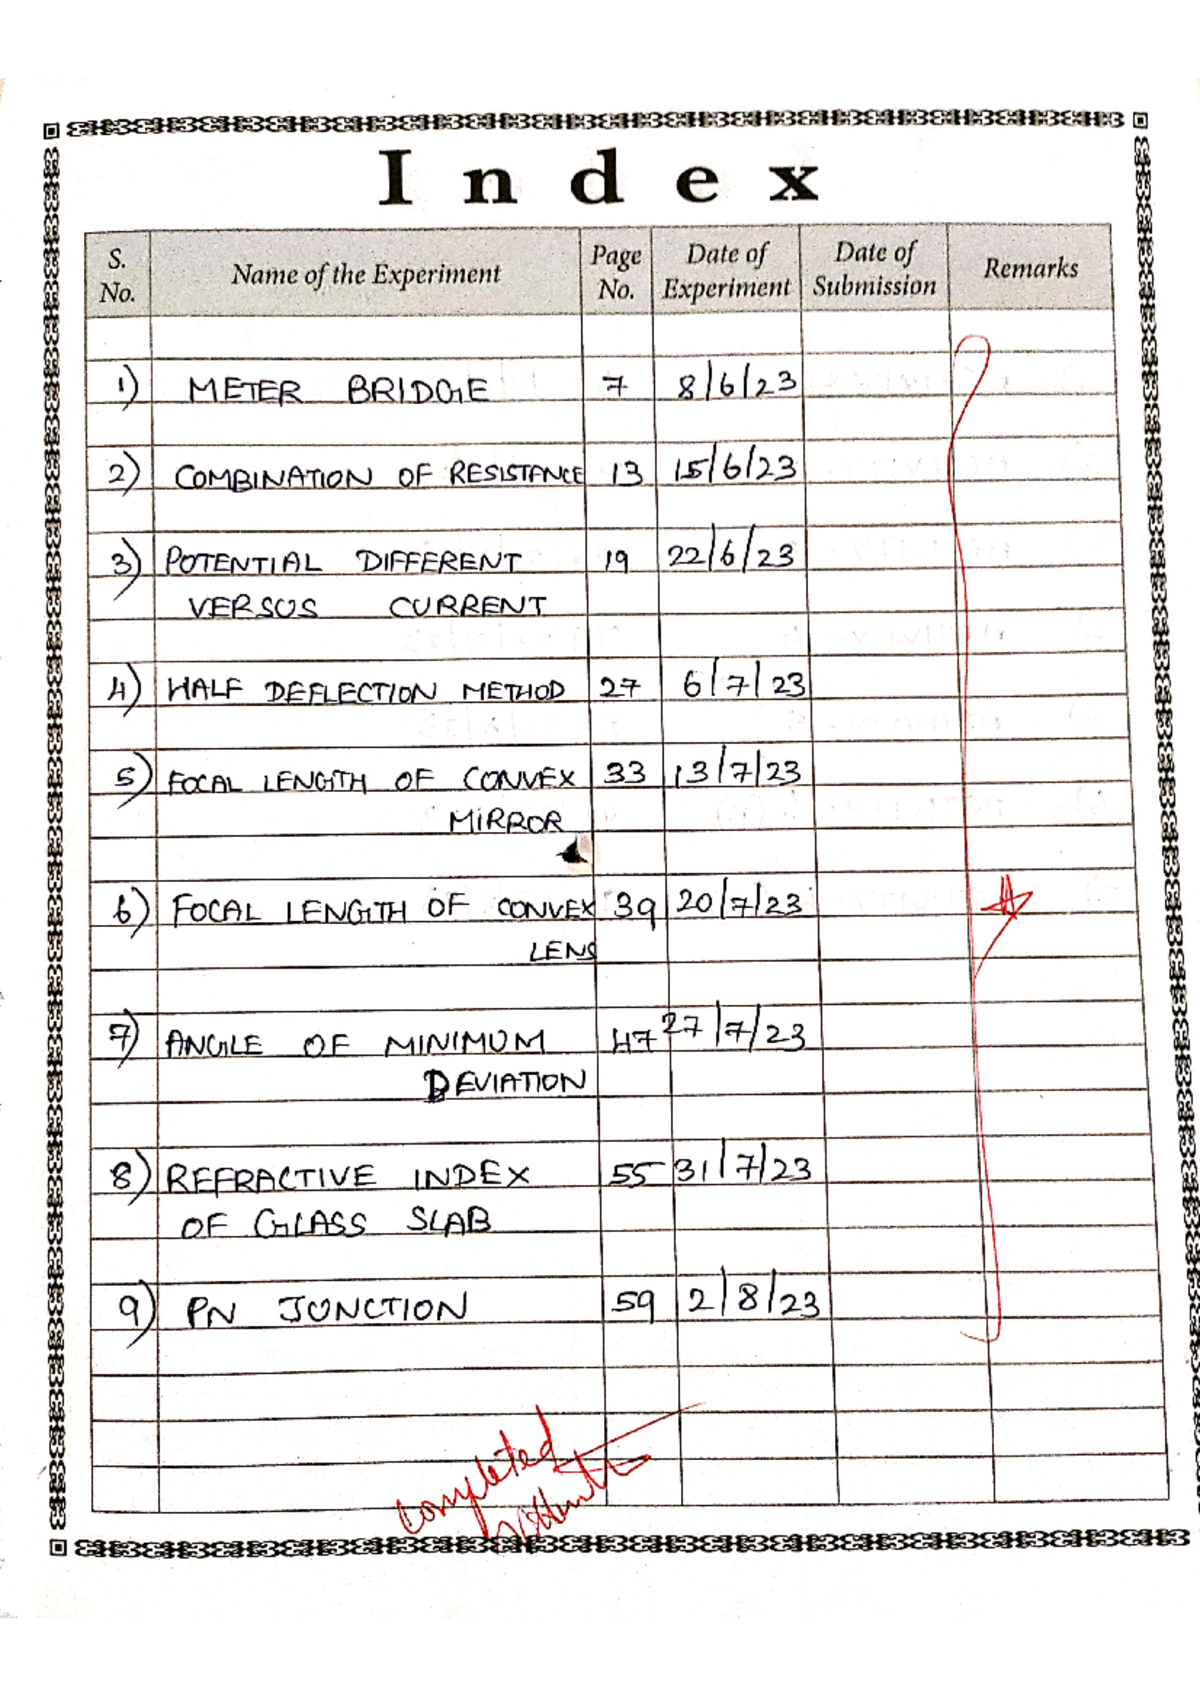 Index
S. No. Name of the Experiment Page No. Date of Experiment Date of Submission Remarks
1) METER BRIDGE 7 8/6/23
2) COMBINATION OF RESISTANCE 13 15/6/23
3) POTENTIAL DIFFERENT 19 22/6/23
VERSUS CURRENT
4) HALF DEFLECTION METHOD 27 6/7/23
5) FOCAL LENGTH OF CONVEX 33 13/7/23
MIRROR
6) FOCAL LENGTH OF CONVEX 39 20/7/23
LENS
7) ANGLE OF MINIMUM 47 27/7/23
DEVIATION
8) REFRACTIVE INDEX 55 31/7/23
OF GLASS SLAB
9) PN JUNCTION 59 2/8/23
Completed